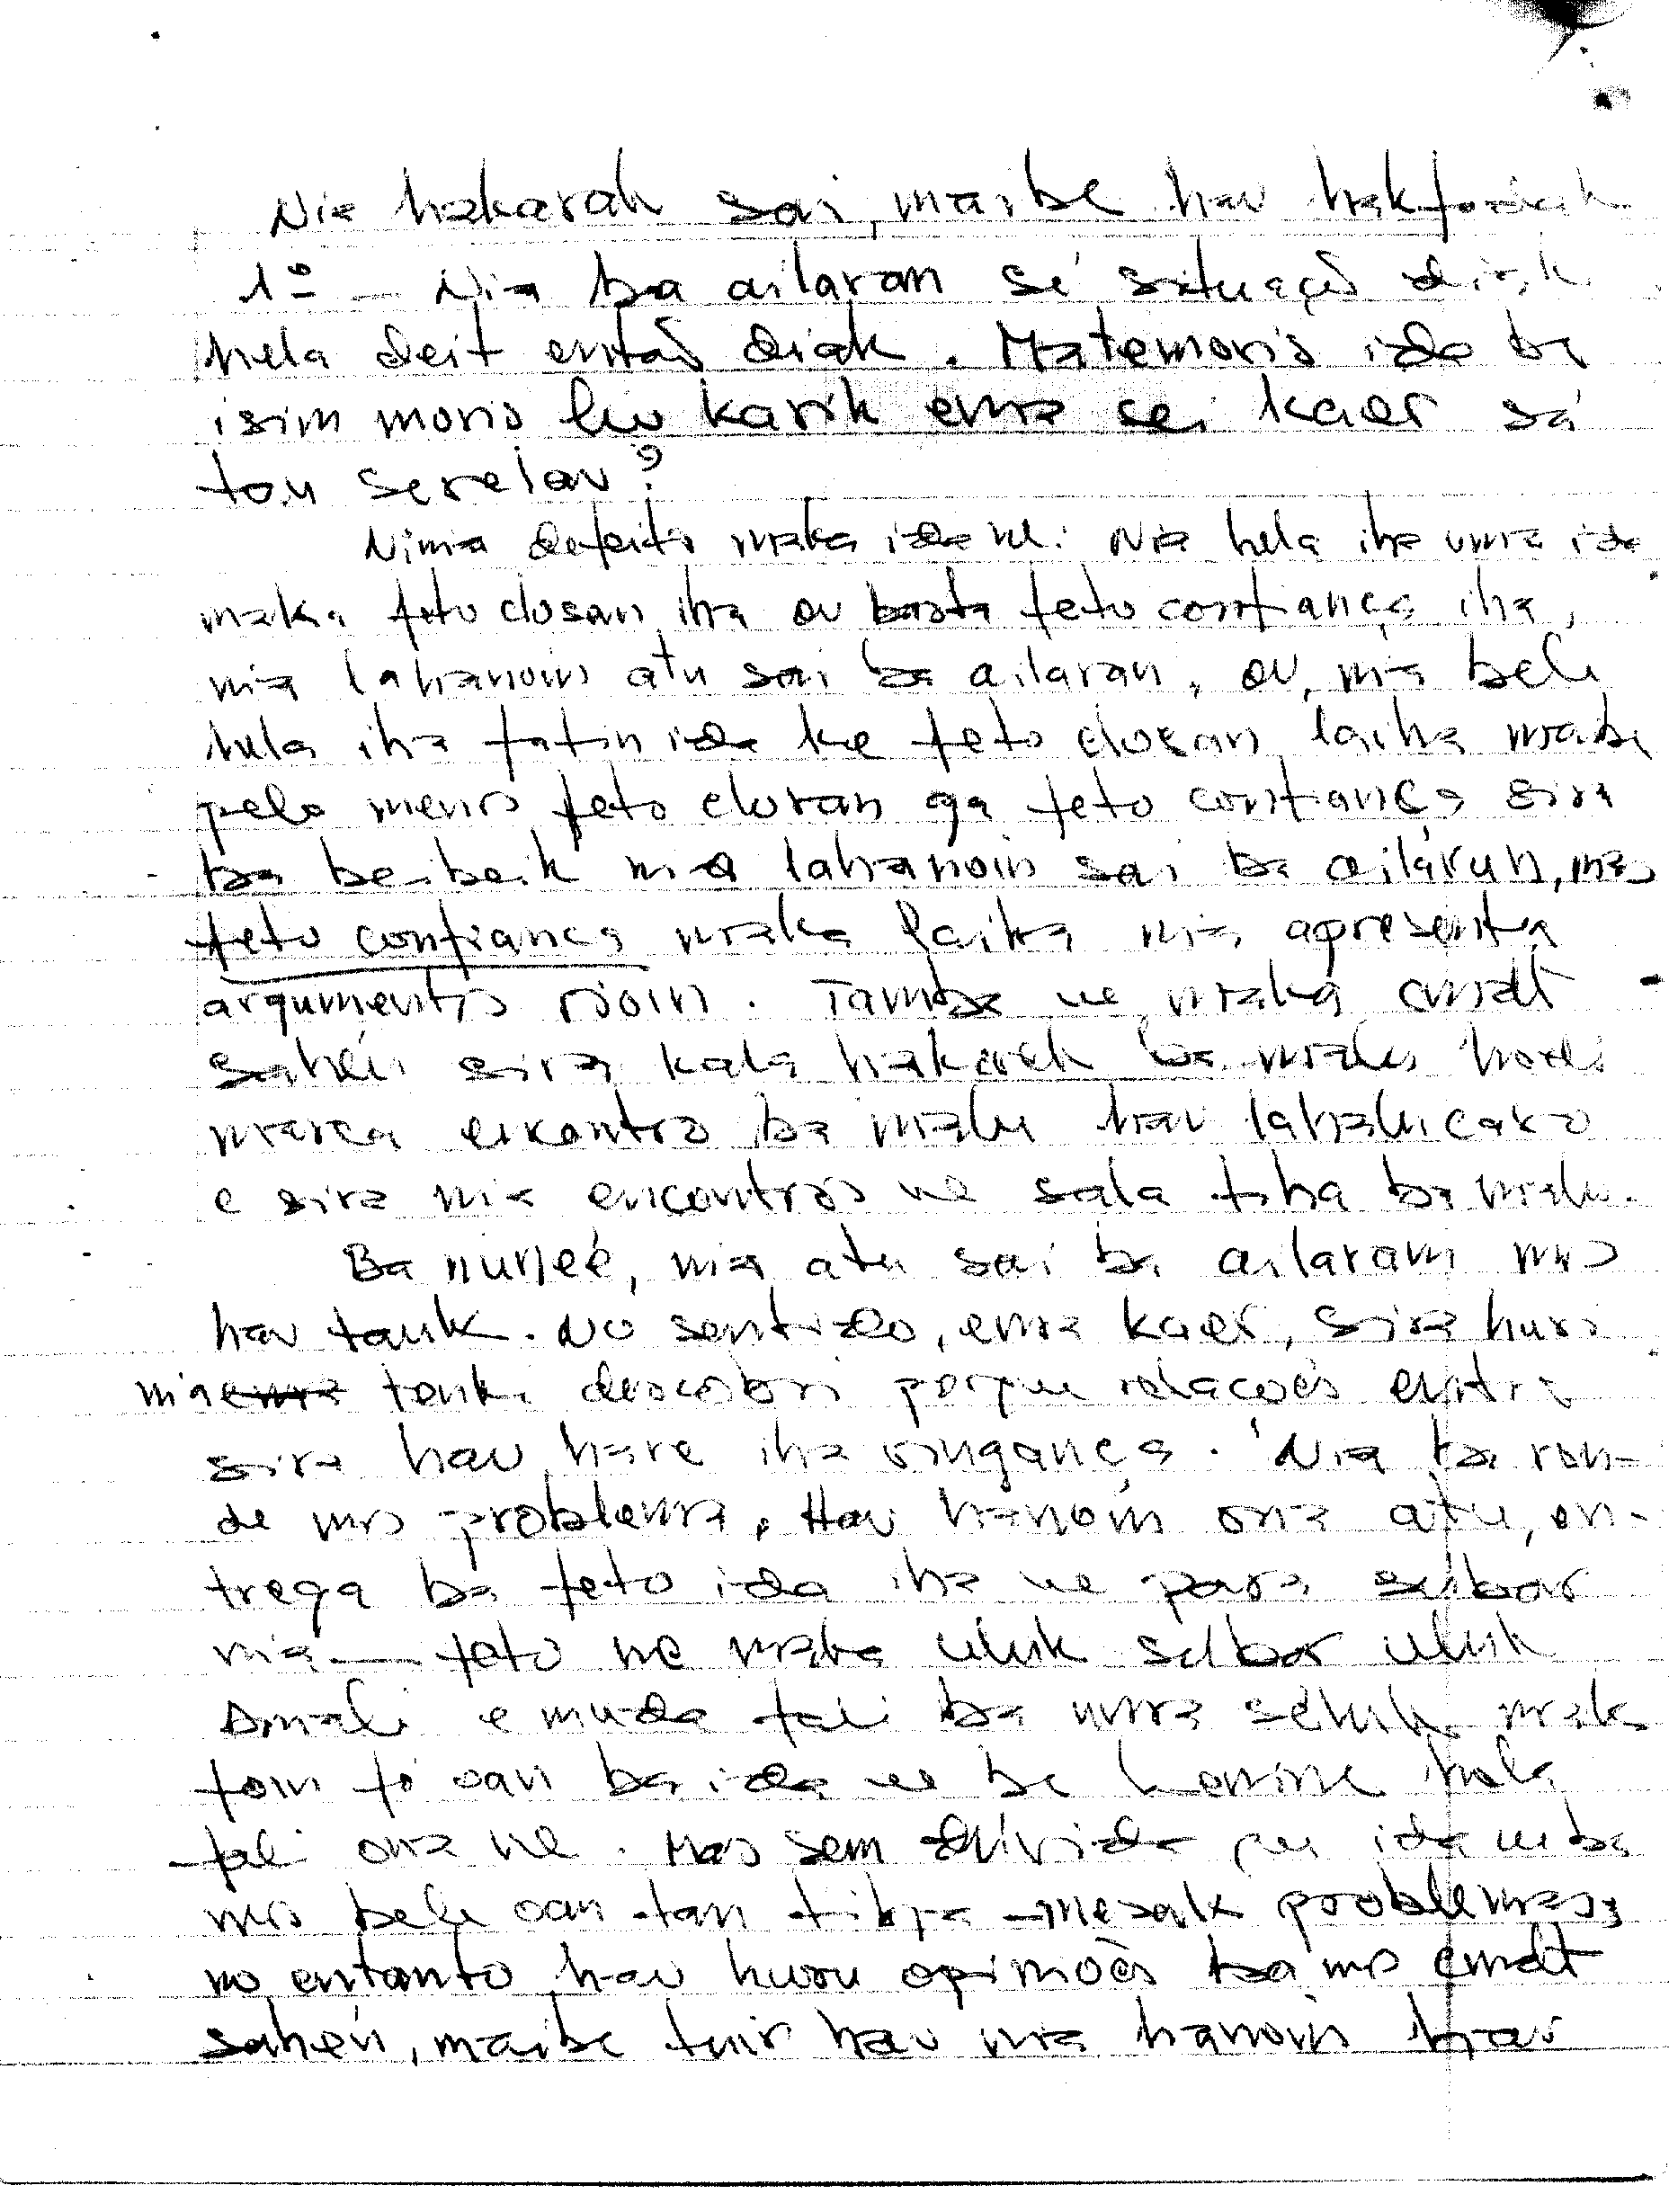 Nia hakarak sai, maibe hau hakfodak
1º — Nia ba ailaran sé situação diak
hela deit entaõ diak. Matemoris ida ba
isim moris liu karik ema sei kaer sá
tou serelou?
Nimia defeito maka ida ne: Nia hela iha uma ida
maka feto dosan iha ou basta feto confiança iha,
nia lahanoin atu sai ba ailaran, ou, nia bele
hela iha fatin ida ke feto dosan laiha maibe
pelo menos feto dosan ga feto confiança sira
ba beibeik nia lahanoin sai ba ailaran, mas
feto confiança maka laiha nia apresenta
argumentos rioin. Tamba ne maka cmdt
sahéi sira kala hakarak ba malu hodi
marca enkontro ba malu hau lahalu caso
e sira nia encontros ne sala tiha ba malu.
Ba nunee, nia atu sai ba ailaram mos
hau tauk. No sentido, ema kaer, sira husi
nia tenki descobri porque relacoẽs entre
sira hau hare iha vingança. Nia ba ron-
de mos problema. Hau hanoin ona atu, en-
trega ba feto ida iha ne para subar
nia — feto ne maka uluk subar uluk
Amali e muda fali ba uma seluk maka
foin fó oan ba ida ne be horiine hola
fali ona ne. Mas sem dúvida que ida ne ba
mos bele oan tan tiha mesak problemas,
no entanto hau husu opinioẽs ba mos cmdt
sahéi, maibe tuir hau nia hanoin hau